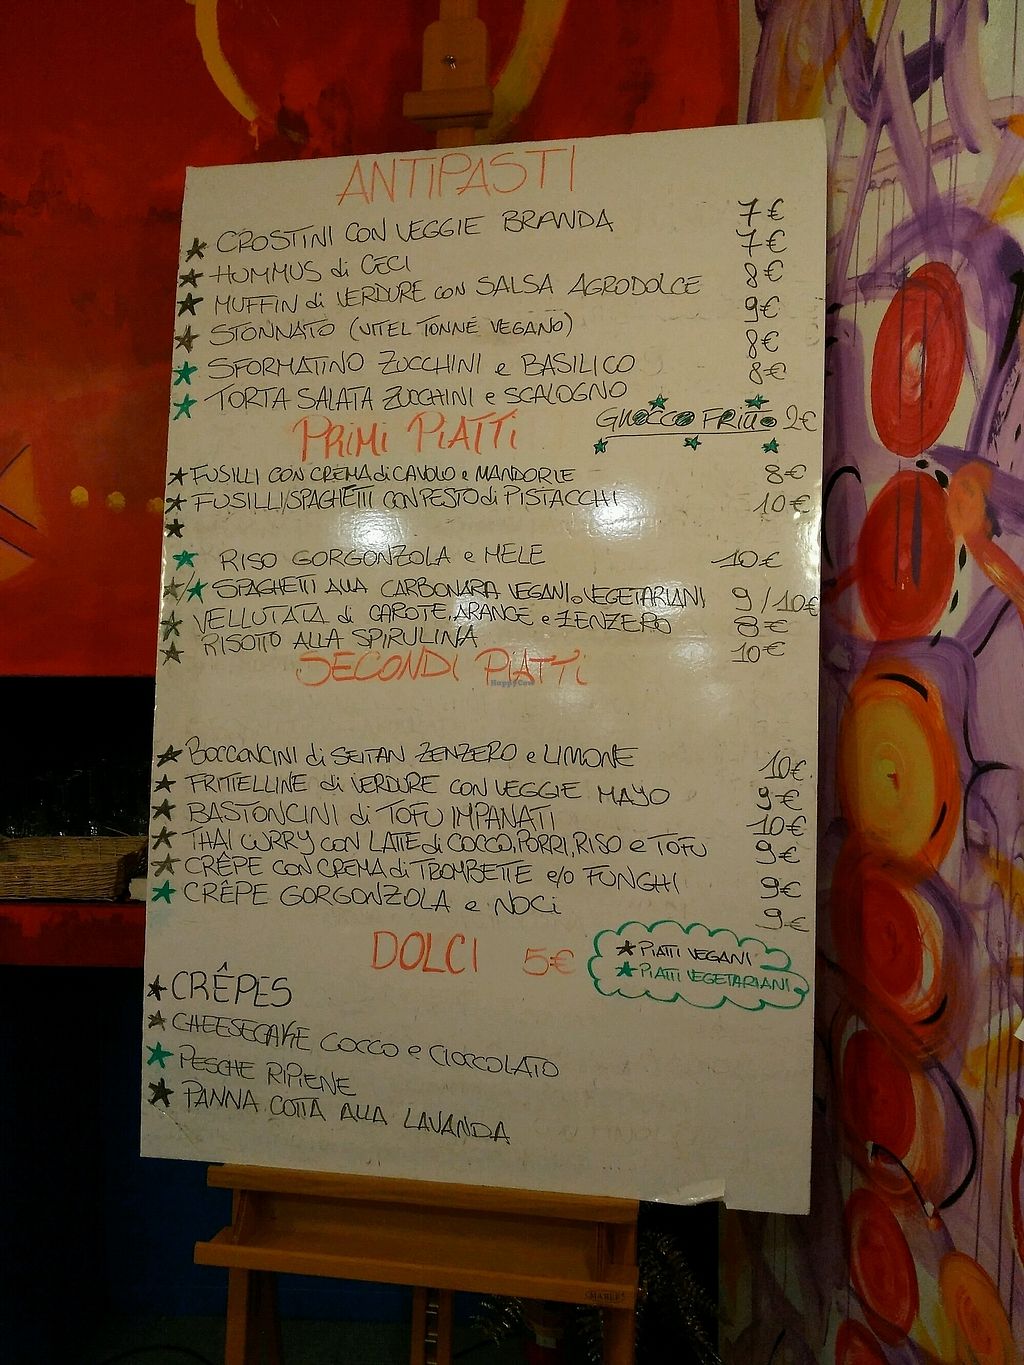 ANTIPASTI
★ CROSTINI CON VEGGIE BRANDA 7€
★ HUMMUS di CECI 7€
★ MUFFIN di VERDURE con SALSA AGRODOLCE 8€
★ STONNATO (VITEL TONNÉ VEGANO) 9€
★ SFORMATINO ZUCCHINI e BASILICO 8€
★ TORTA SALATA ZUCCHINI e SCALOGNO 8€
GNOCCO FRITTO 2€
PRIMI PIATTI
★ FUSILLI CON CREMA di CAVOLO e MANDORLE 8€
★ FUSILLI/SPAGHETTI CON PESTO di PISTACCHI 10€
★
★ RISO GORGONZOLA e MELE 10€
★/★ SPAGHETTI ALLA CARBONARA VEGANI o VEGETARIANI 9/10€
★ VELLUTATA di CAROTE, ARANCE e ZENZERO 8€
★ RISOTTO ALLA SPIRULINA 10€
SECONDI PIATTI
HappyCow
★ BOCCONCINI di SEITAN ZENZERO e LIMONE 10€.
★ FRITTELLINE di VERDURE CON VEGGIE MAYO 9€
★ BASTONCINI di TOFU IMPANATI 10€
★ THAI CURRY CON LATTE di COCCO, PORRI, RISO e TOFU 9€
★ CRÊPE CON CREMA di TROMBETTE e/o FUNGHI 9€
★ CRÊPE GORGONZOLA e NOCI 9€
DOLCI 5€
★ PIATTI VEGANI
★ PIATTI VEGETARIANI
★ CRÊPES
★ CHEESECAKE COCCO e CIOCCOLATO
★ PESCHE RIPIENE
★ PANNA COTTA ALLA LAVANDA